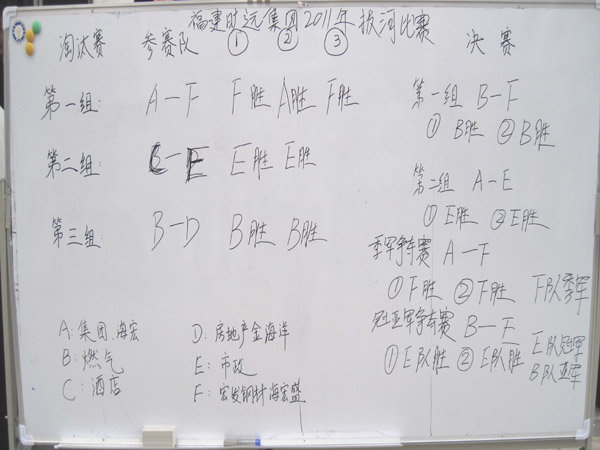 福建时远集团2011年拔河比赛
淘汰赛 参赛队 ① ② ③
第一组: A－F F胜 A胜 F胜
第二组: C－E E胜 E胜
第三组: B－D B胜 B胜
A: 集团.海宏
B: 燃气
C: 酒店
D: 房地产金海洋
E: 市政
F: 宏发钢材海宏盛
决赛
第一组 B－F
① B胜 ② B胜
第二组 A－E
① E胜 ② E胜
季军争夺赛 A－F
① F胜 ② F胜 F队季军
冠亚军争夺赛 B－E
① E队胜 ② E队胜 E队冠军
B队亚军